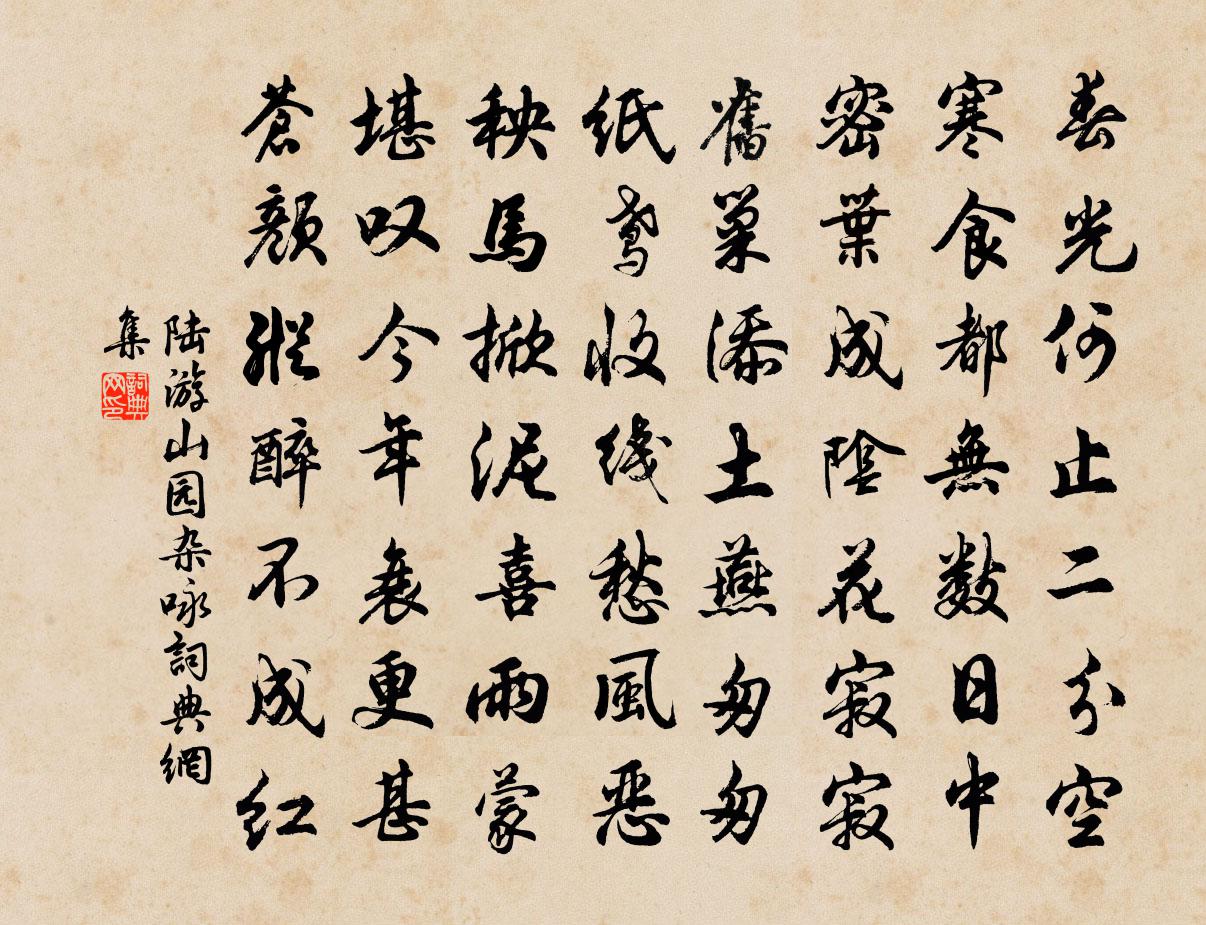 春光何止二分空
寒食都無數日中
密葉成陰花寂寂
舊巢添土燕匆匆
纸鸢收线愁風惡
秧馬掀泥喜雨蒙
堪叹今年衰更甚
蒼顏縱醉不成红
陆游山园杂咏詞典網
集
詞典
网印